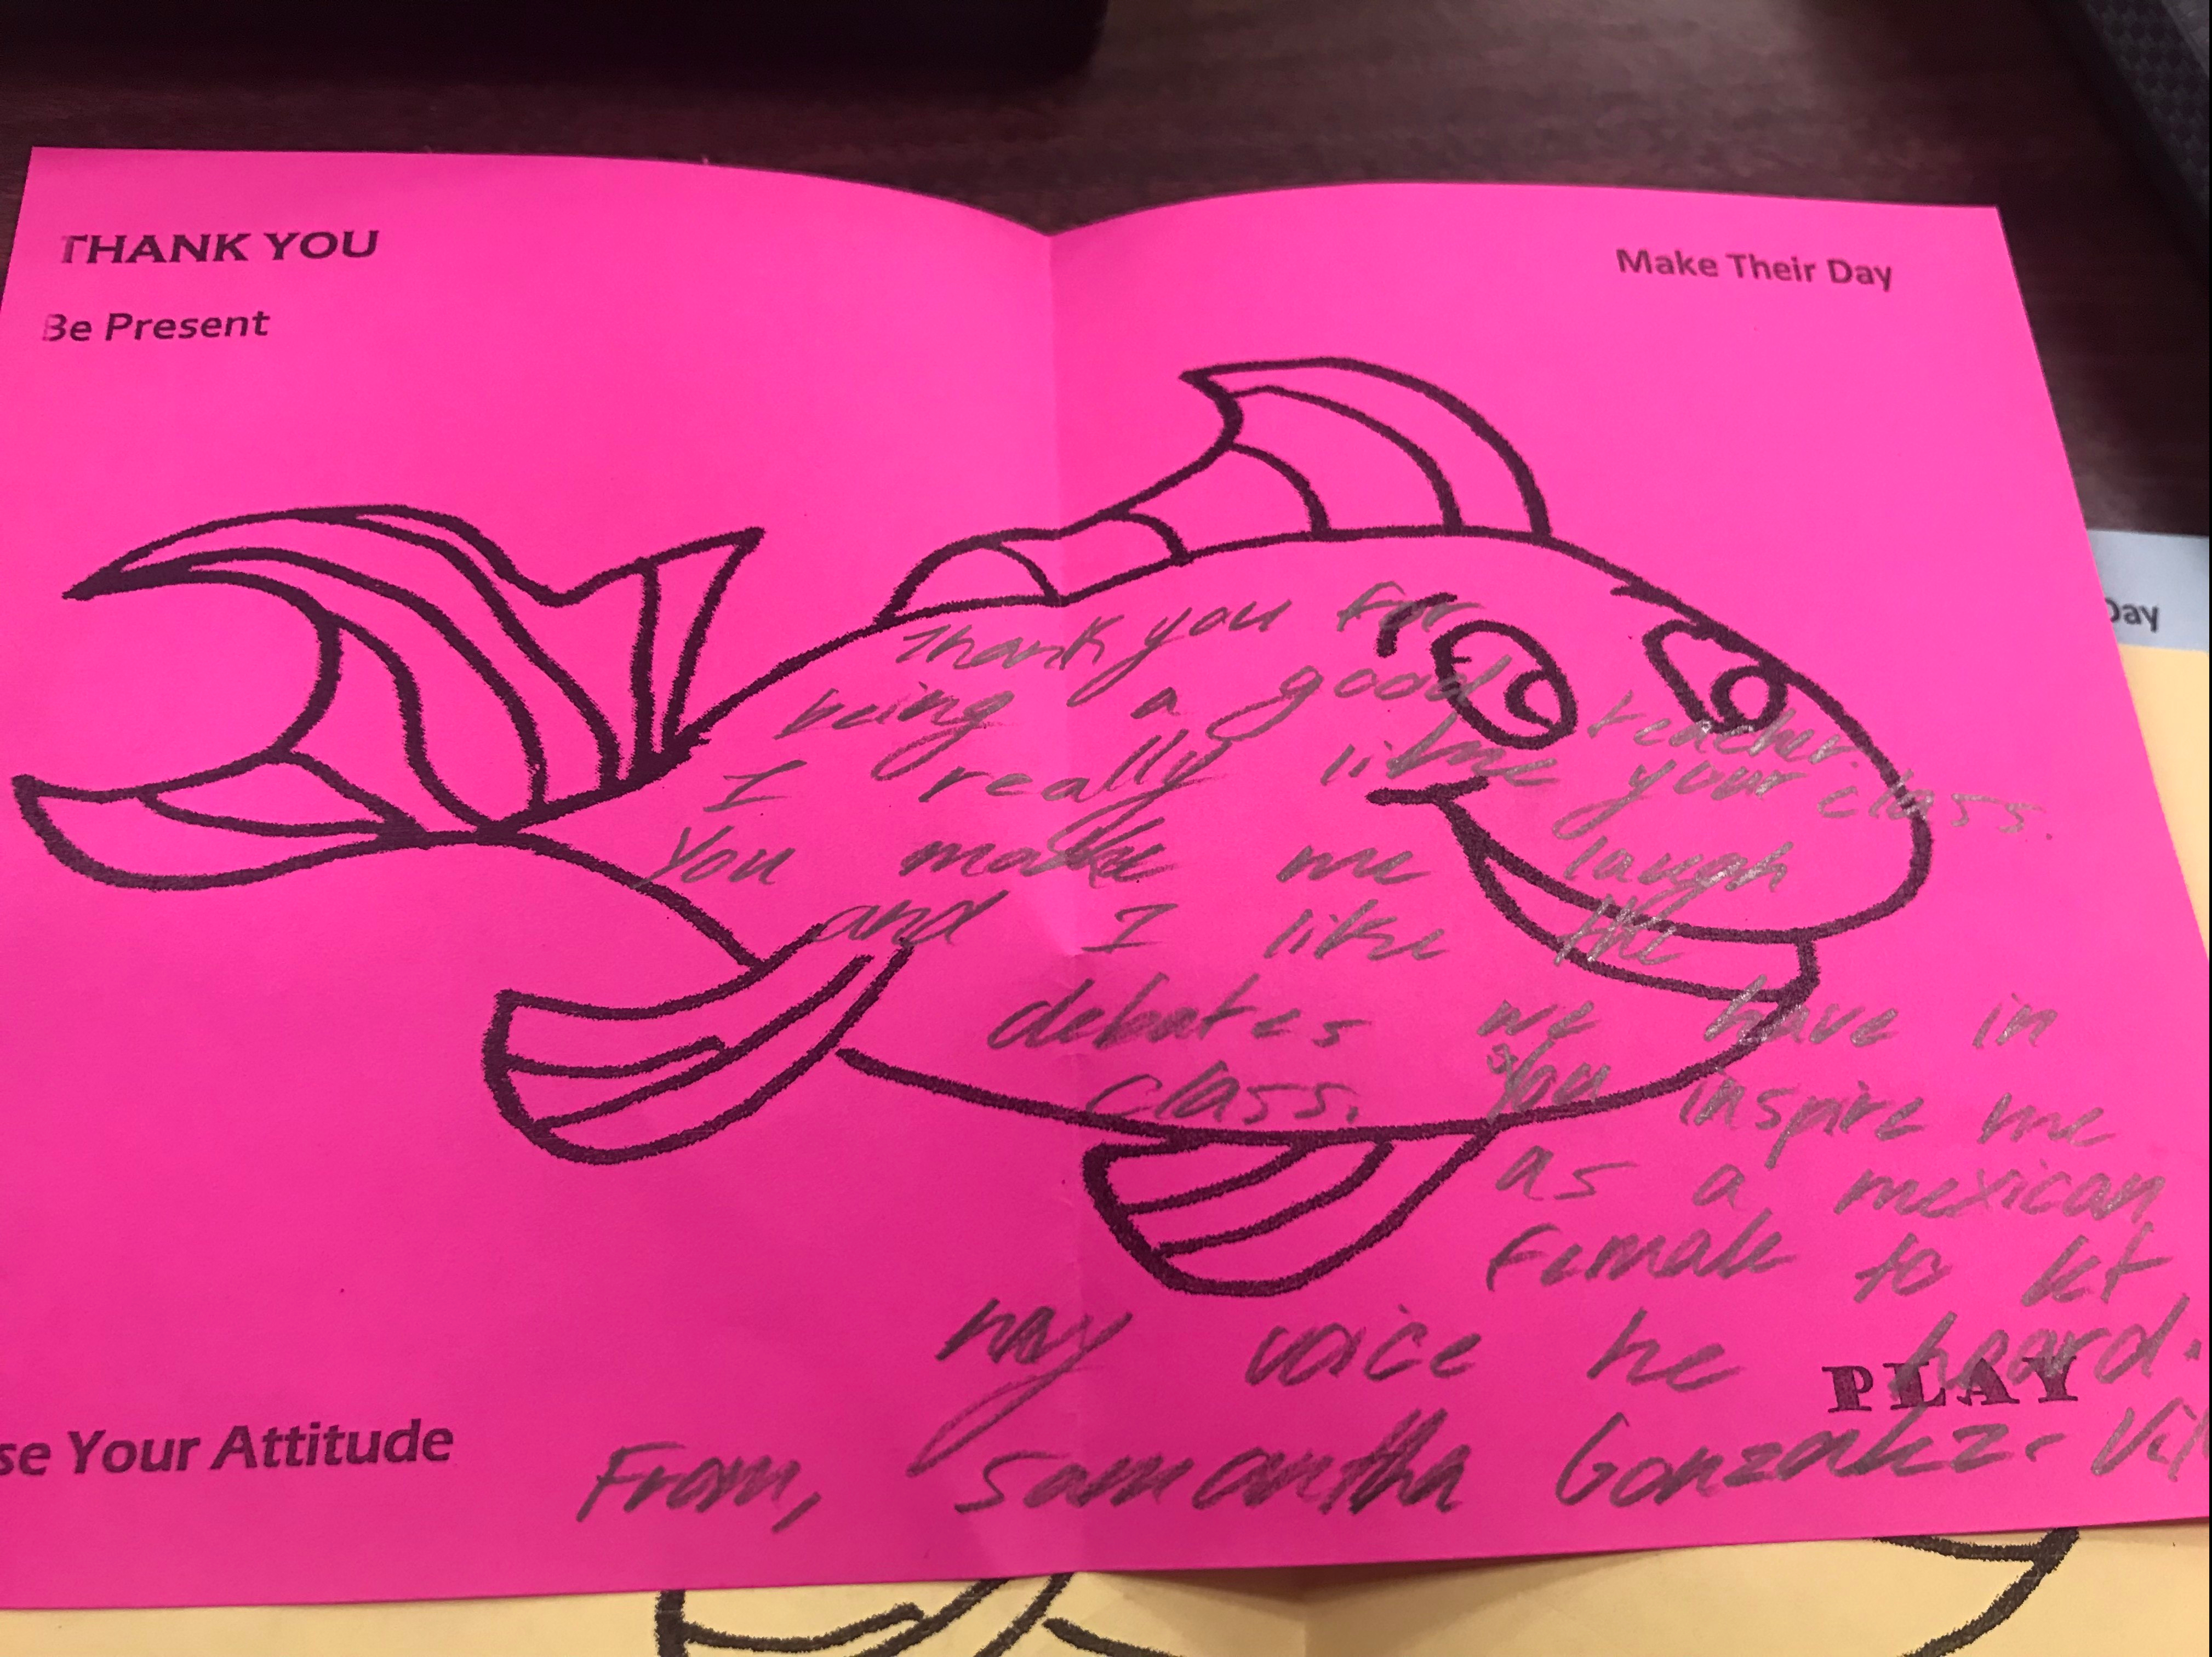 THANK YOU
Make Their Day
Be Present
Day
Thank you for
being a good teacher.
I really like your class.
You make me laugh
and I like the
debates we have in
class. You inspire me
as a mexican
female to let
my voice be heard.
PLAY
se Your Attitude
From, Samantha Gonzalez-Vil